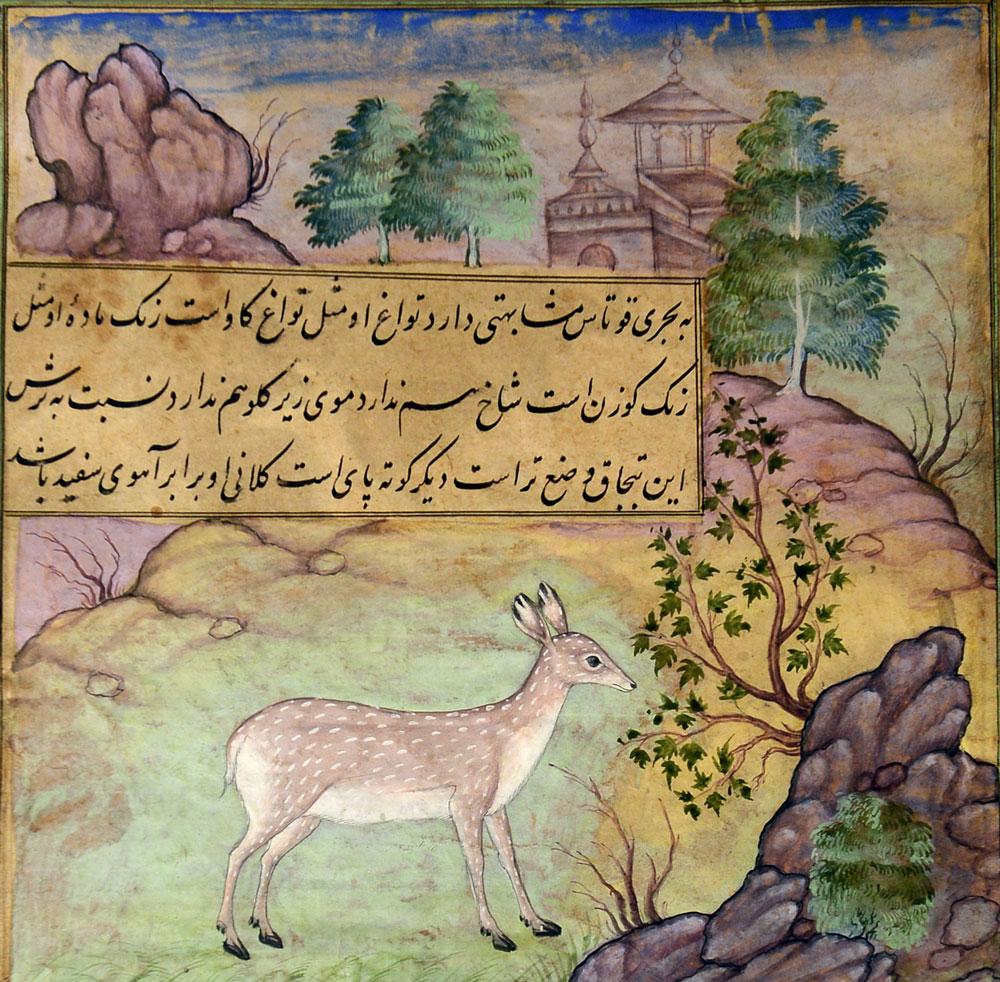 به بحری قوتاس مشابهتی دارد تواغ او مثل تواغ کاو است زنک ماده او مثل
زنک کوزن است شاخ هم ندارد موی زیر کلو هم ندارد نسبت به نرش
این تبحاق وضع تر است دیکر کوته پای است کلانی او برابر آهوی سفید باشد